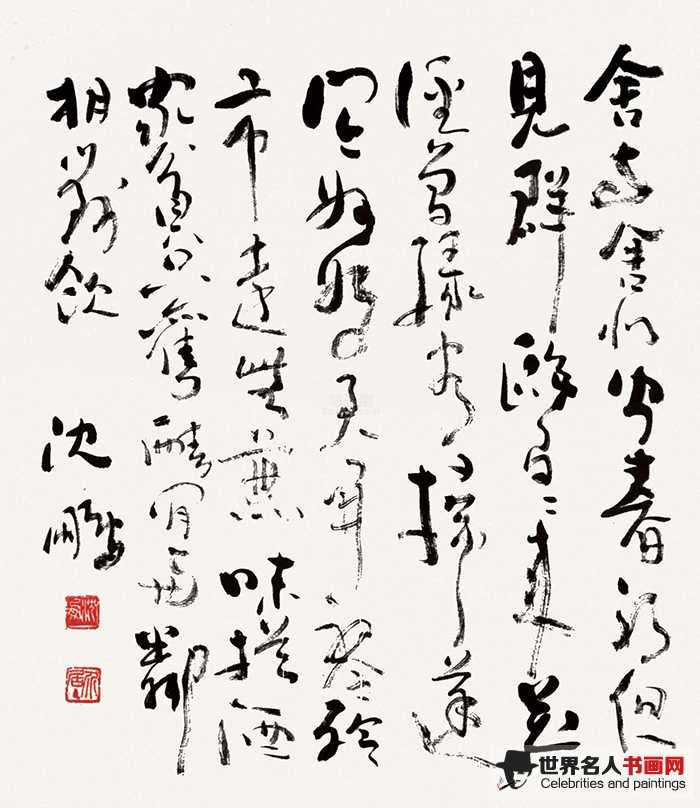 舍南舍北皆春水但
見群鷗日〻來花
徑曾緣客掃蓬
門今始為君開盤飧
市遠無兼味樽酒
家貧只舊醅肯與鄰
相對飲
沈鵬
世界名人书画网
Celebrities and paintings